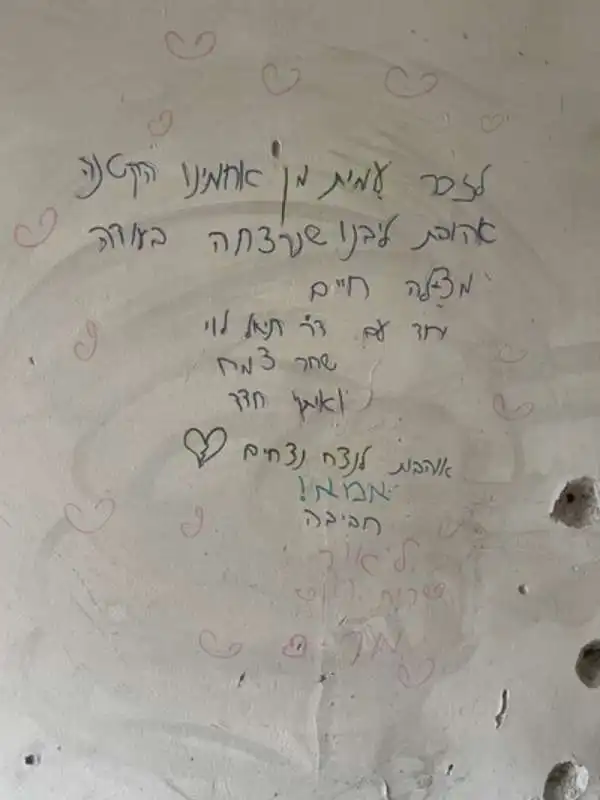 לזכר עמית מן אחתינו הקטנה
אהובת ליבנו שנרצחה בעודה
מצילה חיים
יחד עם ד״ר דניאל לוי
שחר צמח
ואיתן חדד
אוהבת לנצח נצחים
אמא!
חביבה
ליאור